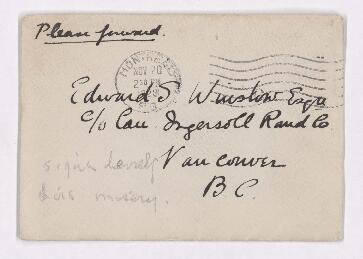 Please forward.
MONTREAL
NOV 20
2 30 PM
Edward S Winslow Esqr
c/o Can. Ingersoll Rand Co
Vancouver
B C.
his misery.